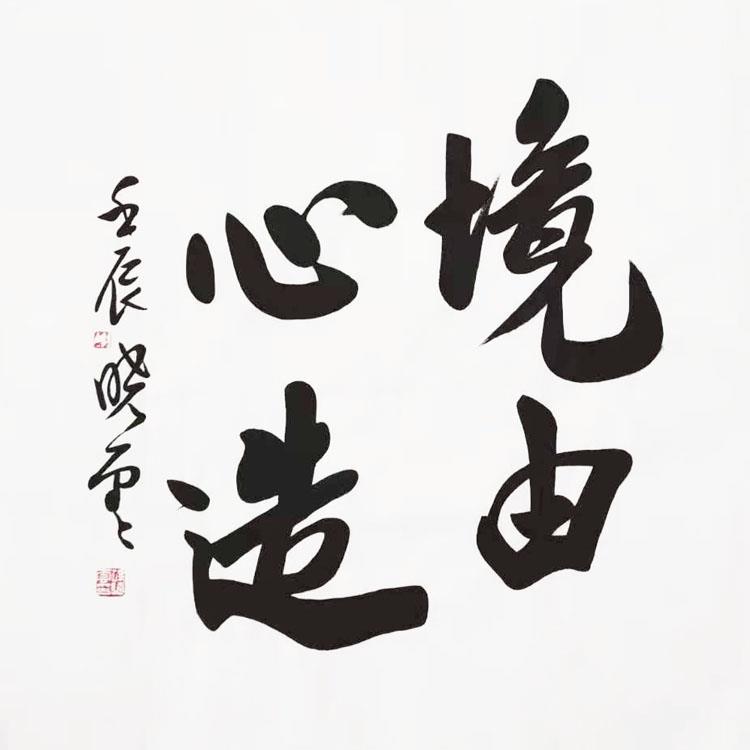 境由
心造
壬辰
晓云